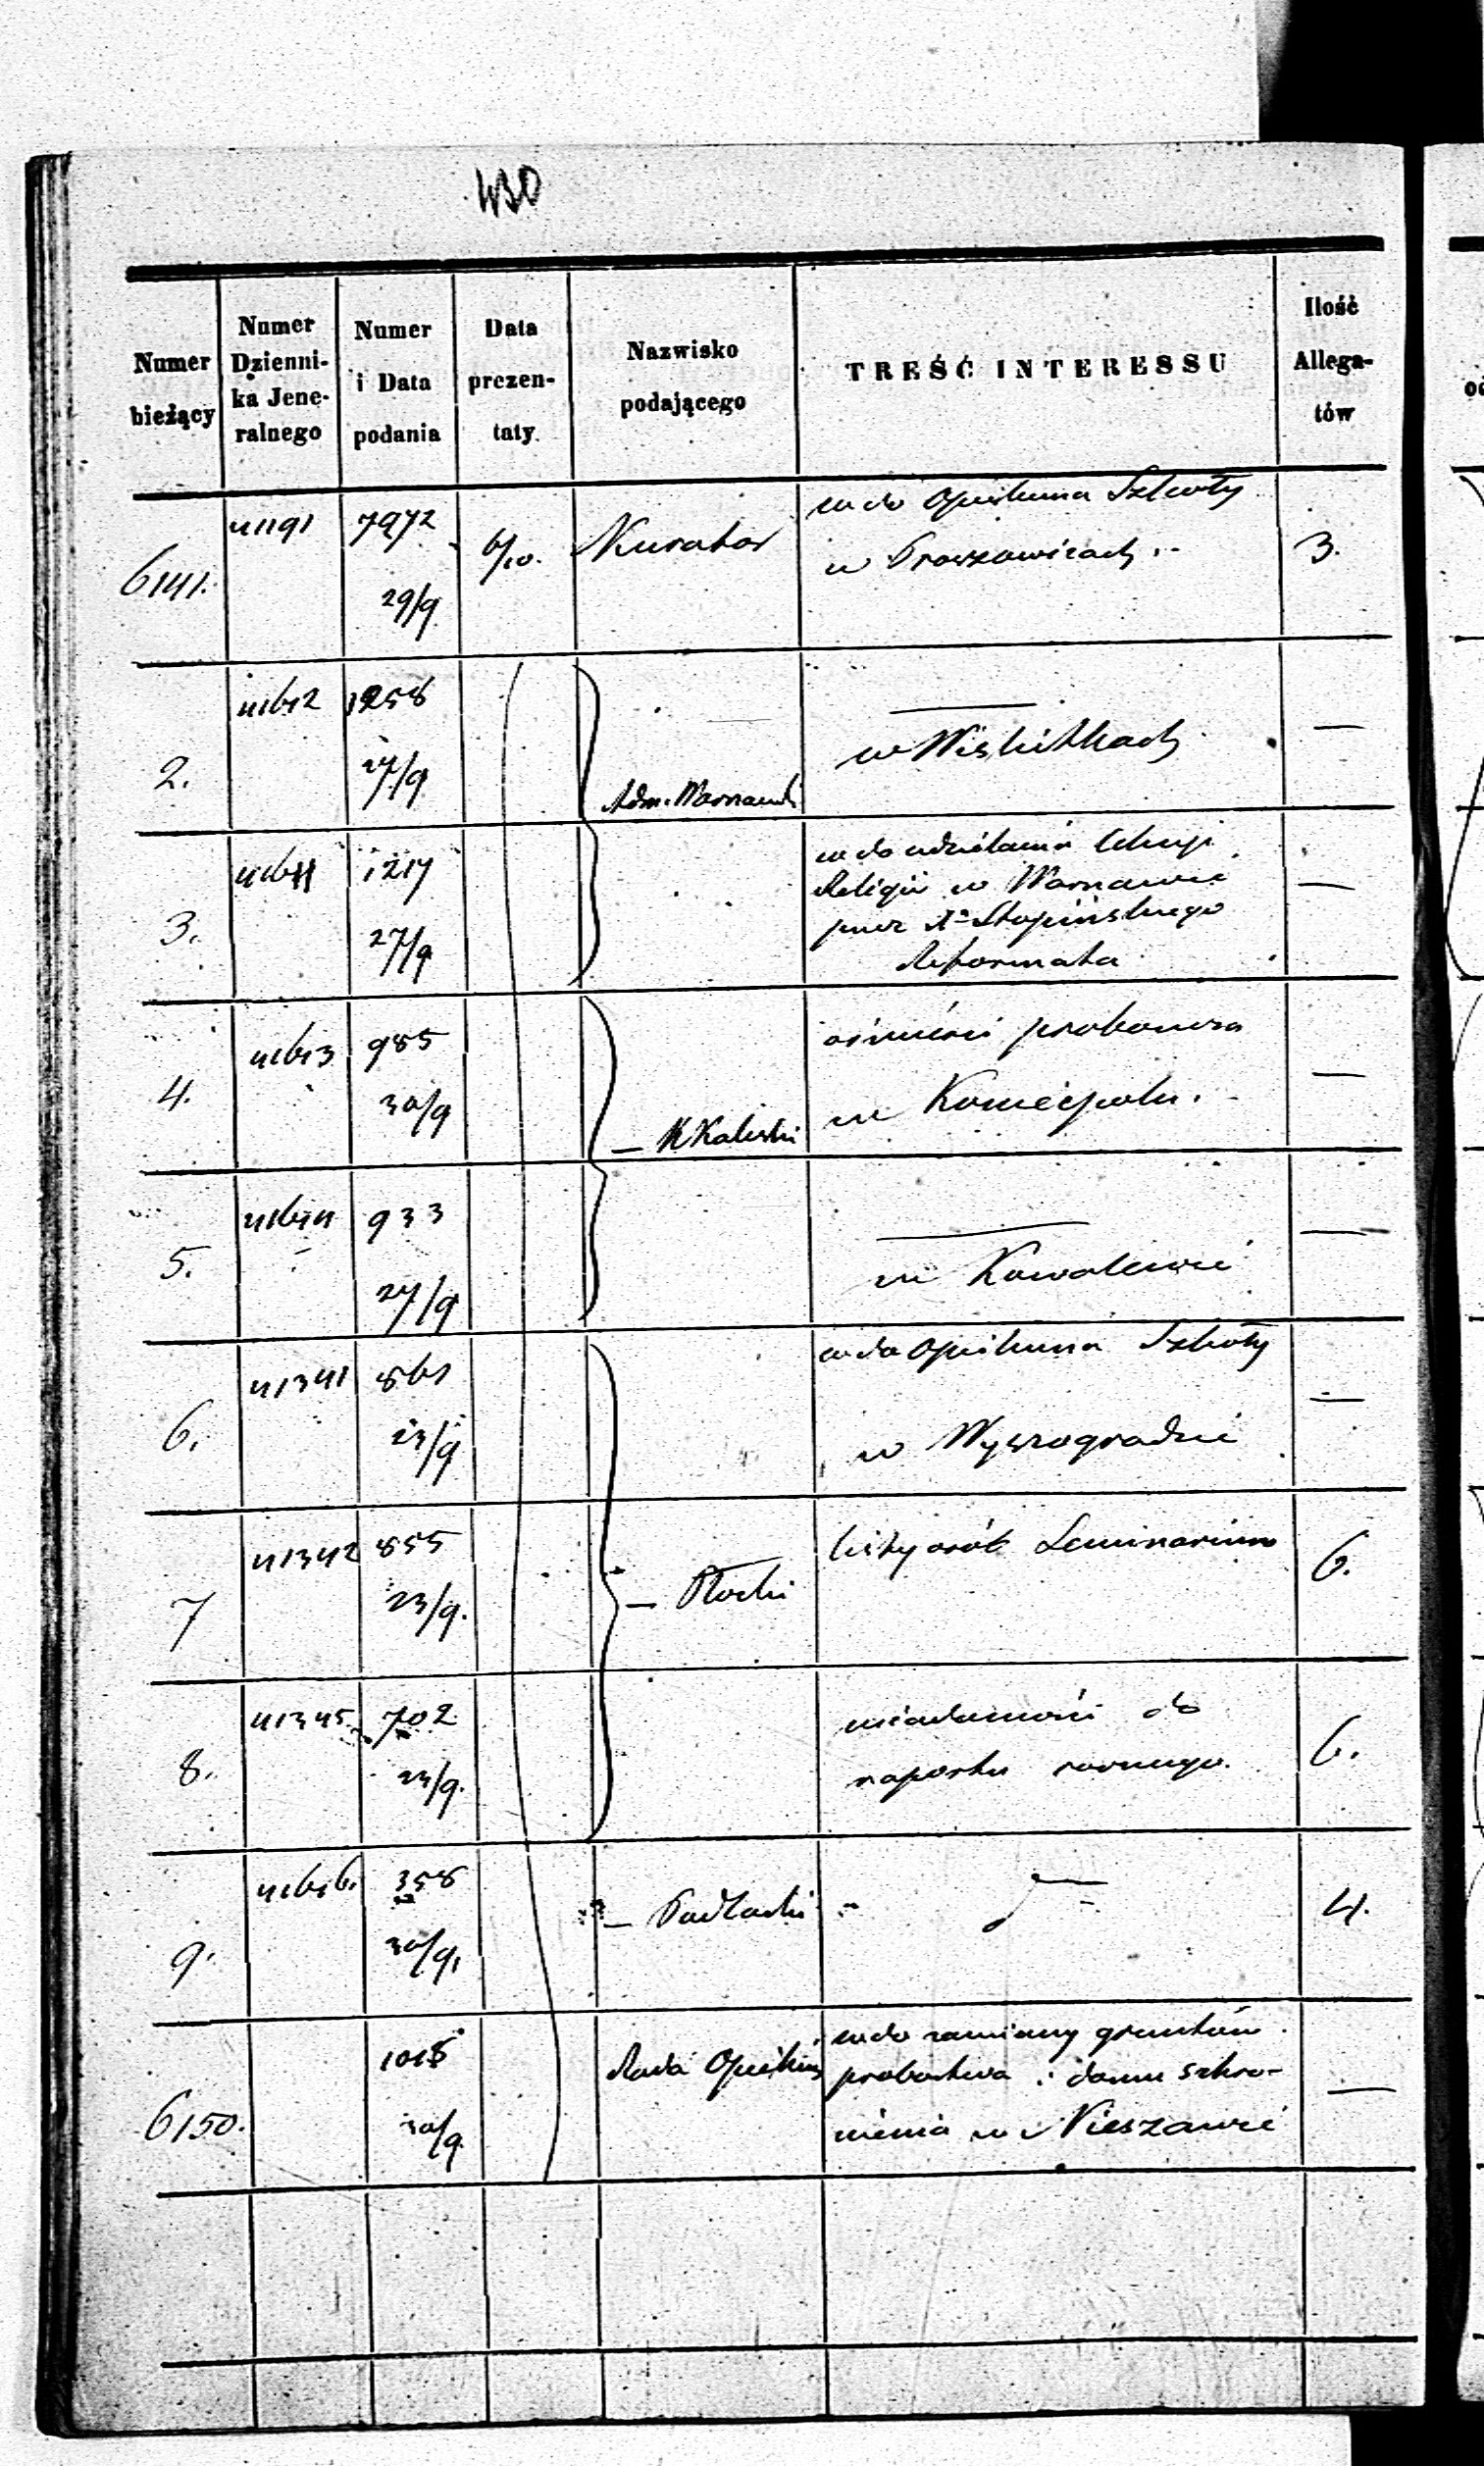 430
Numer bieżący
Numer Dzienni-
ka Jene-
ralnego
Numer
i Data
podania
Data
prezen-
taty.
Nazwisko
podającego
TREŚĆ INTERESSU
Ilość
Allega-
tów
6141. 41191 7972 29/9 6/10. Kurator
w do Opiekuna Szkoły
w Proszowicach
3.
2. 41612 1258 27/9 Adm. Warszawski
w Wiskitkach
—
3. 1217 27/9
w do udzielania lekcyi
Religii w Warszawie
przez Xa
Reformata
—
4. 41613 985 30/9 — K Kaliski
o śmierci proboszcza
w Koniecpolu.
—
5. 41614 933 27/9
w Kowalewie
—
6. 41341 861 23/9
w do Opiekuna Szkoły
w Wyszogrodzie
—
7 41342 855 23/9. — Płocki
listy osób Seminarium
6.
8. 41345 702 23/9.
wiadomości do
raportu rocznego.
6.
9. 41616. 358 30/9. — Podlaski
4.
6150. 1015 30/9 Rada Opiekuń
w do zamiany gruntów
probostwa i domu schro-
nienia w Nieszawie
—